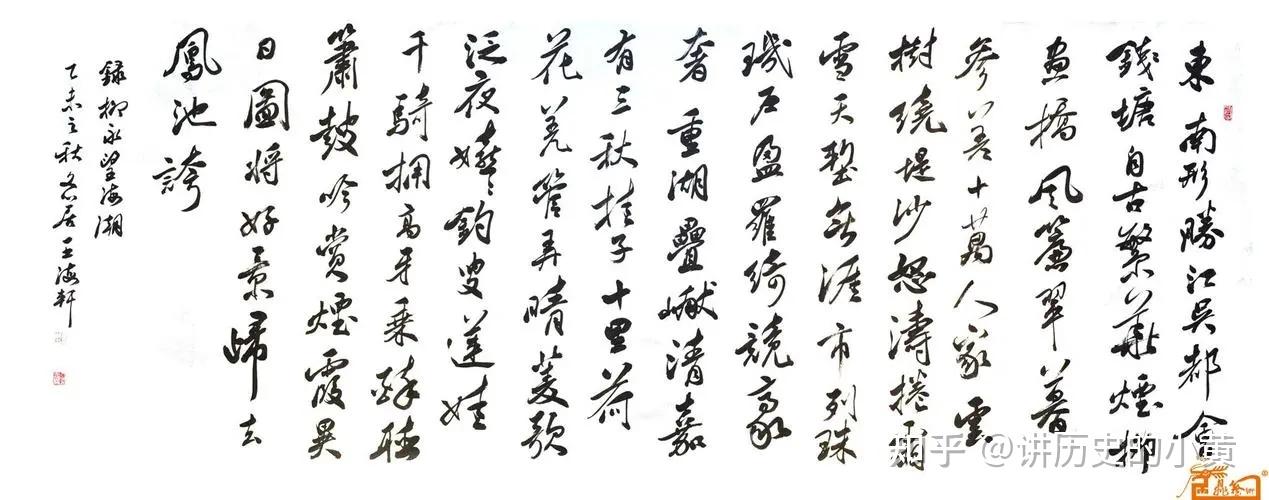 東南形勝江吳都會
錢塘自古繁華煙柳
畫橋風簾翠幕
參差十萬人家雲
樹繞堤沙怒濤捲霜
雪天塹無涯市列珠
璣戶盈羅綺競豪
奢重湖疊巘清嘉
有三秋桂子十里荷
花羌管弄晴菱歌
泛夜嬉〻釣叟蓮娃
千騎拥高牙乘醉聽
簫鼓吟賞煙霞異
日圖將好景歸去
鳳池誇
錄柳永望海潮
乙未之秋居王海軒
知乎 @讲历史的小黄